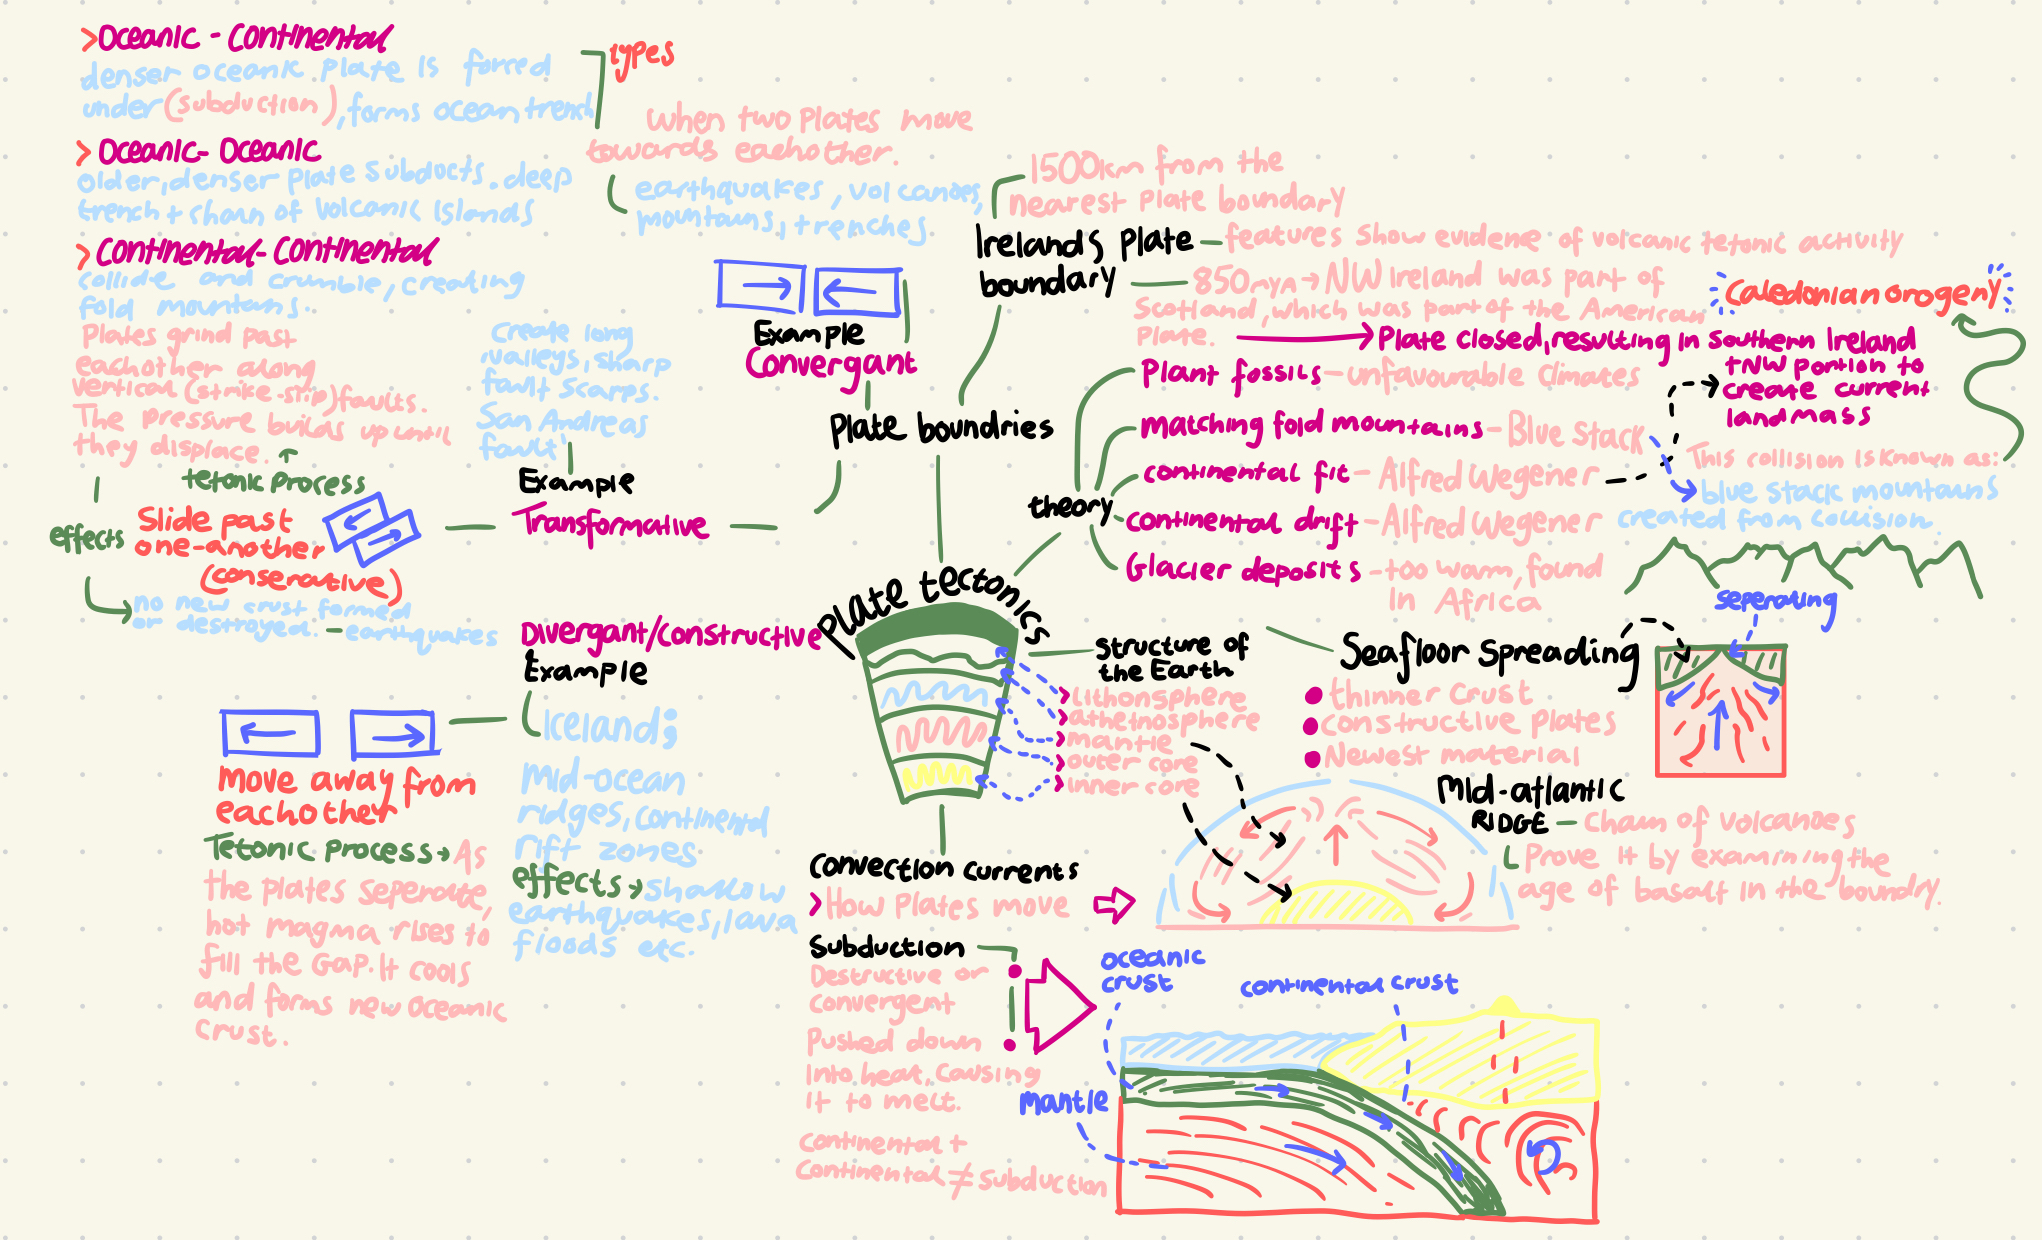 >Oceanic - Continental
denser oceanic plate is forced
under (subduction), forms ocean trench
> Oceanic- Oceanic
older, denser plate subducts. deep
trench + chain of volcanic islands
> Continental- Continental
collide and crumble, creating
fold mountains.
types
When two plates move
towards eachother.
earthquakes, volcanoes,
mountains, + trenches
Example
Convergant
Plate boundries
Plates grind past
eachother along
vertical (strike-slip) faults.
The pressure builds up until
they displace.
tetonic process
effects
Slide past
one-another
(conserative)
no new crust formed
or destroyed. - earthquakes
Create long
valleys, sharp
fault scarps.
San Andreas
fault
Example
Transformative
Divergant/constructive
Example
Iceland;
Mid-ocean
ridges, continental
rift zones
effects → shallow
earthquakes, lava
floods etc.
Move away from
eachother
Tetonic process → As
the plates seperate,
hot magma rises to
fill the gap. It cools
and forms new oceanic
crust.
1500km from the
nearest plate boundary
Irelands plate
boundary
features show evidence of volcanic tetonic activity
850mya → NW Ireland was part of
Scotland, which was part of the American
plate.
Caledonian orogeny
Plate closed, resulting in southern Ireland
+NW portion to
create current
landmass
This collision is known as:
theory
Plant fossils - unfavourable climates
matching fold mountains - Blue Stack
continental fit - Alfred Wegener
continental drift - Alfred Wegener
Glacier deposits - too warm, found
in Africa
blue stack mountains
created from collision.
Plate tectonics
structure of
the Earth
> lithonsphere
> athetnosphere
> mantle
> outer core
> inner core
Seafloor spreading
thinner crust
constructive plates
Newest material
seperating
Mid-atlantic
RIDGE - Chain of volcanoes
Prove it by examining the
age of basalt in the boundry.
Convection currents
> How plates move
Subduction
Destructive or
convergent
Pushed down
into heat, causing
it to melt.
continental +
continental ≠ subduction
oceanic
crust
continental crust
mantle